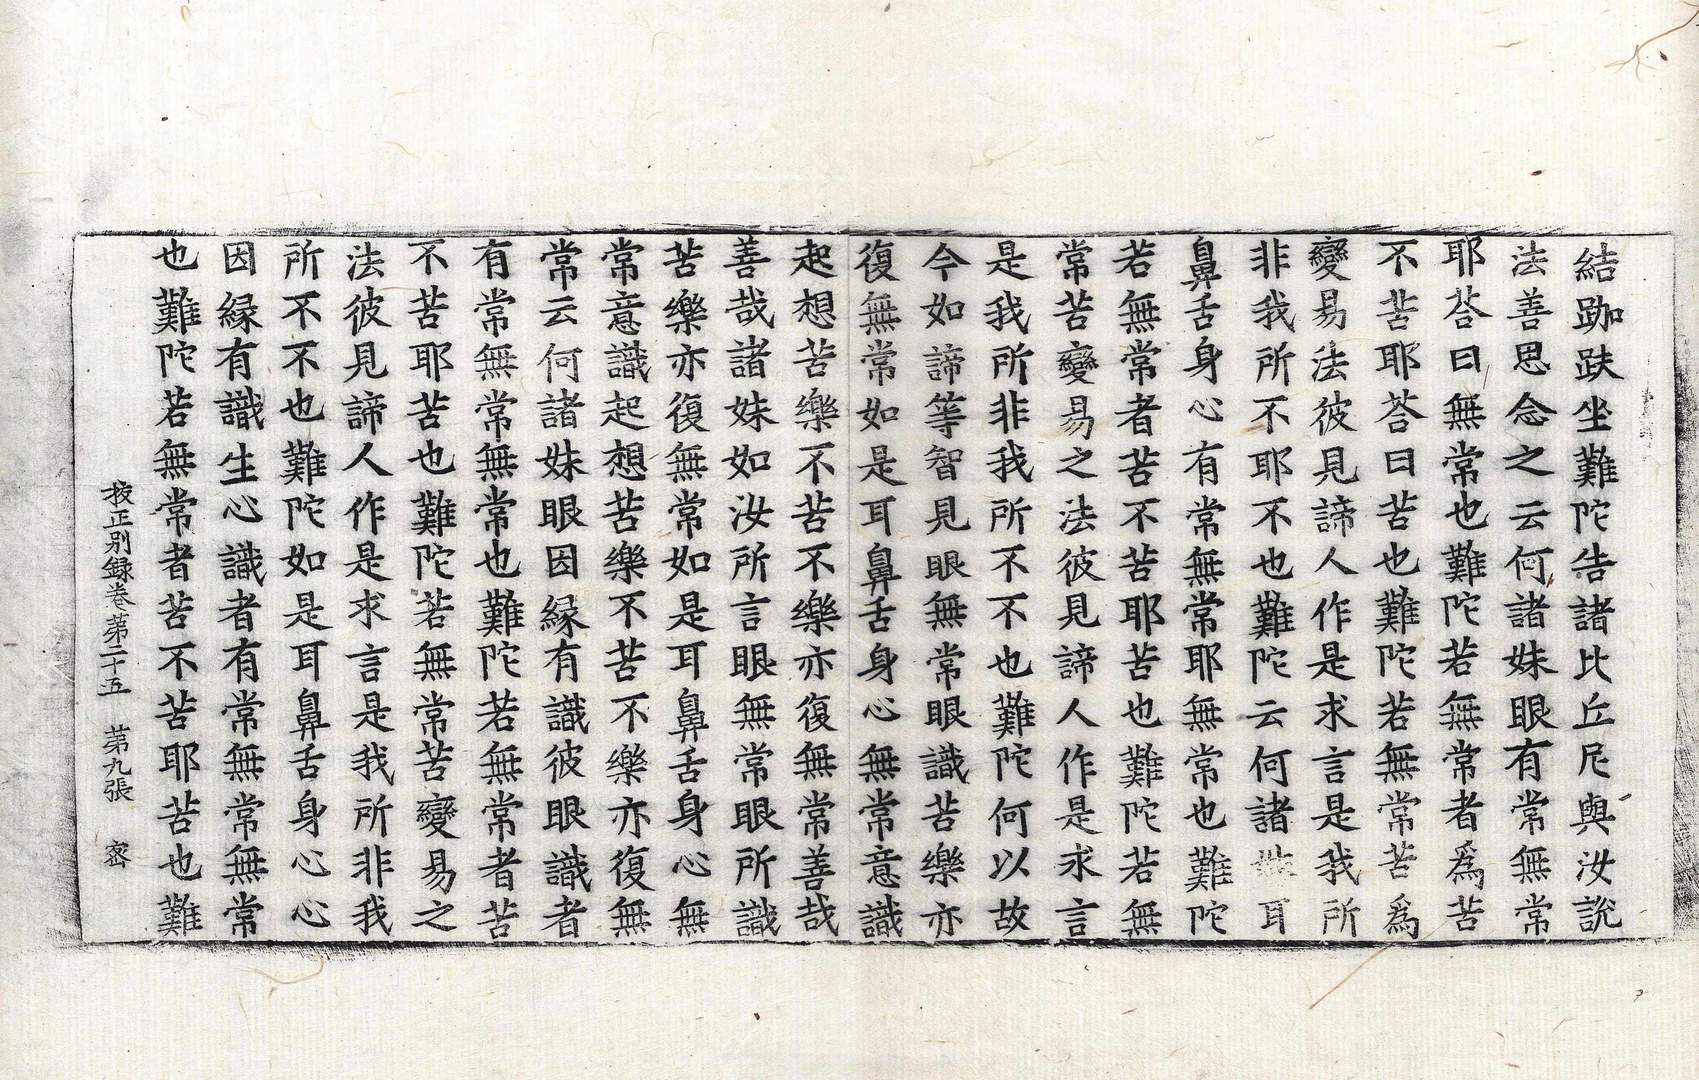 結跏趺坐難陀告諸比丘尼與汝說
法善思念之云何諸妹眼有常無常
耶荅曰無常也難陀若無常者爲苦
不苦耶荅曰苦也難陀若無常苦爲
變易法彼見諦人作是求言是我所
非我所不耶不也難陀云何諸妹耳
鼻舌身心有常無常耶無常也難陀
若無常者苦不苦耶苦也難陀若無
常苦變易之法彼見諦人作是求言
是我所非我所不不也難陀何以故
今如諦等智見眼無常眼識苦樂亦
復無常如是耳鼻舌身心無常意識
起想苦樂不苦不樂亦復無常善哉
善哉諸妹如汝所言眼無常眼所識
苦樂亦復無常如是耳鼻舌身心無
常意識起想苦樂不苦不樂亦復無
常云何諸妹眼因緣有識彼眼識者
有常無常無常也難陀若無常者苦
不苦耶苦也難陀若無常苦變易之
法彼見諦人作是求言是我所非我
所不不也難陀如是耳鼻舌身心心
因緣有識生心識者有常無常無常
也難陀若無常者苦不苦耶苦也難
校正別録卷苐二十五 苐九張 密